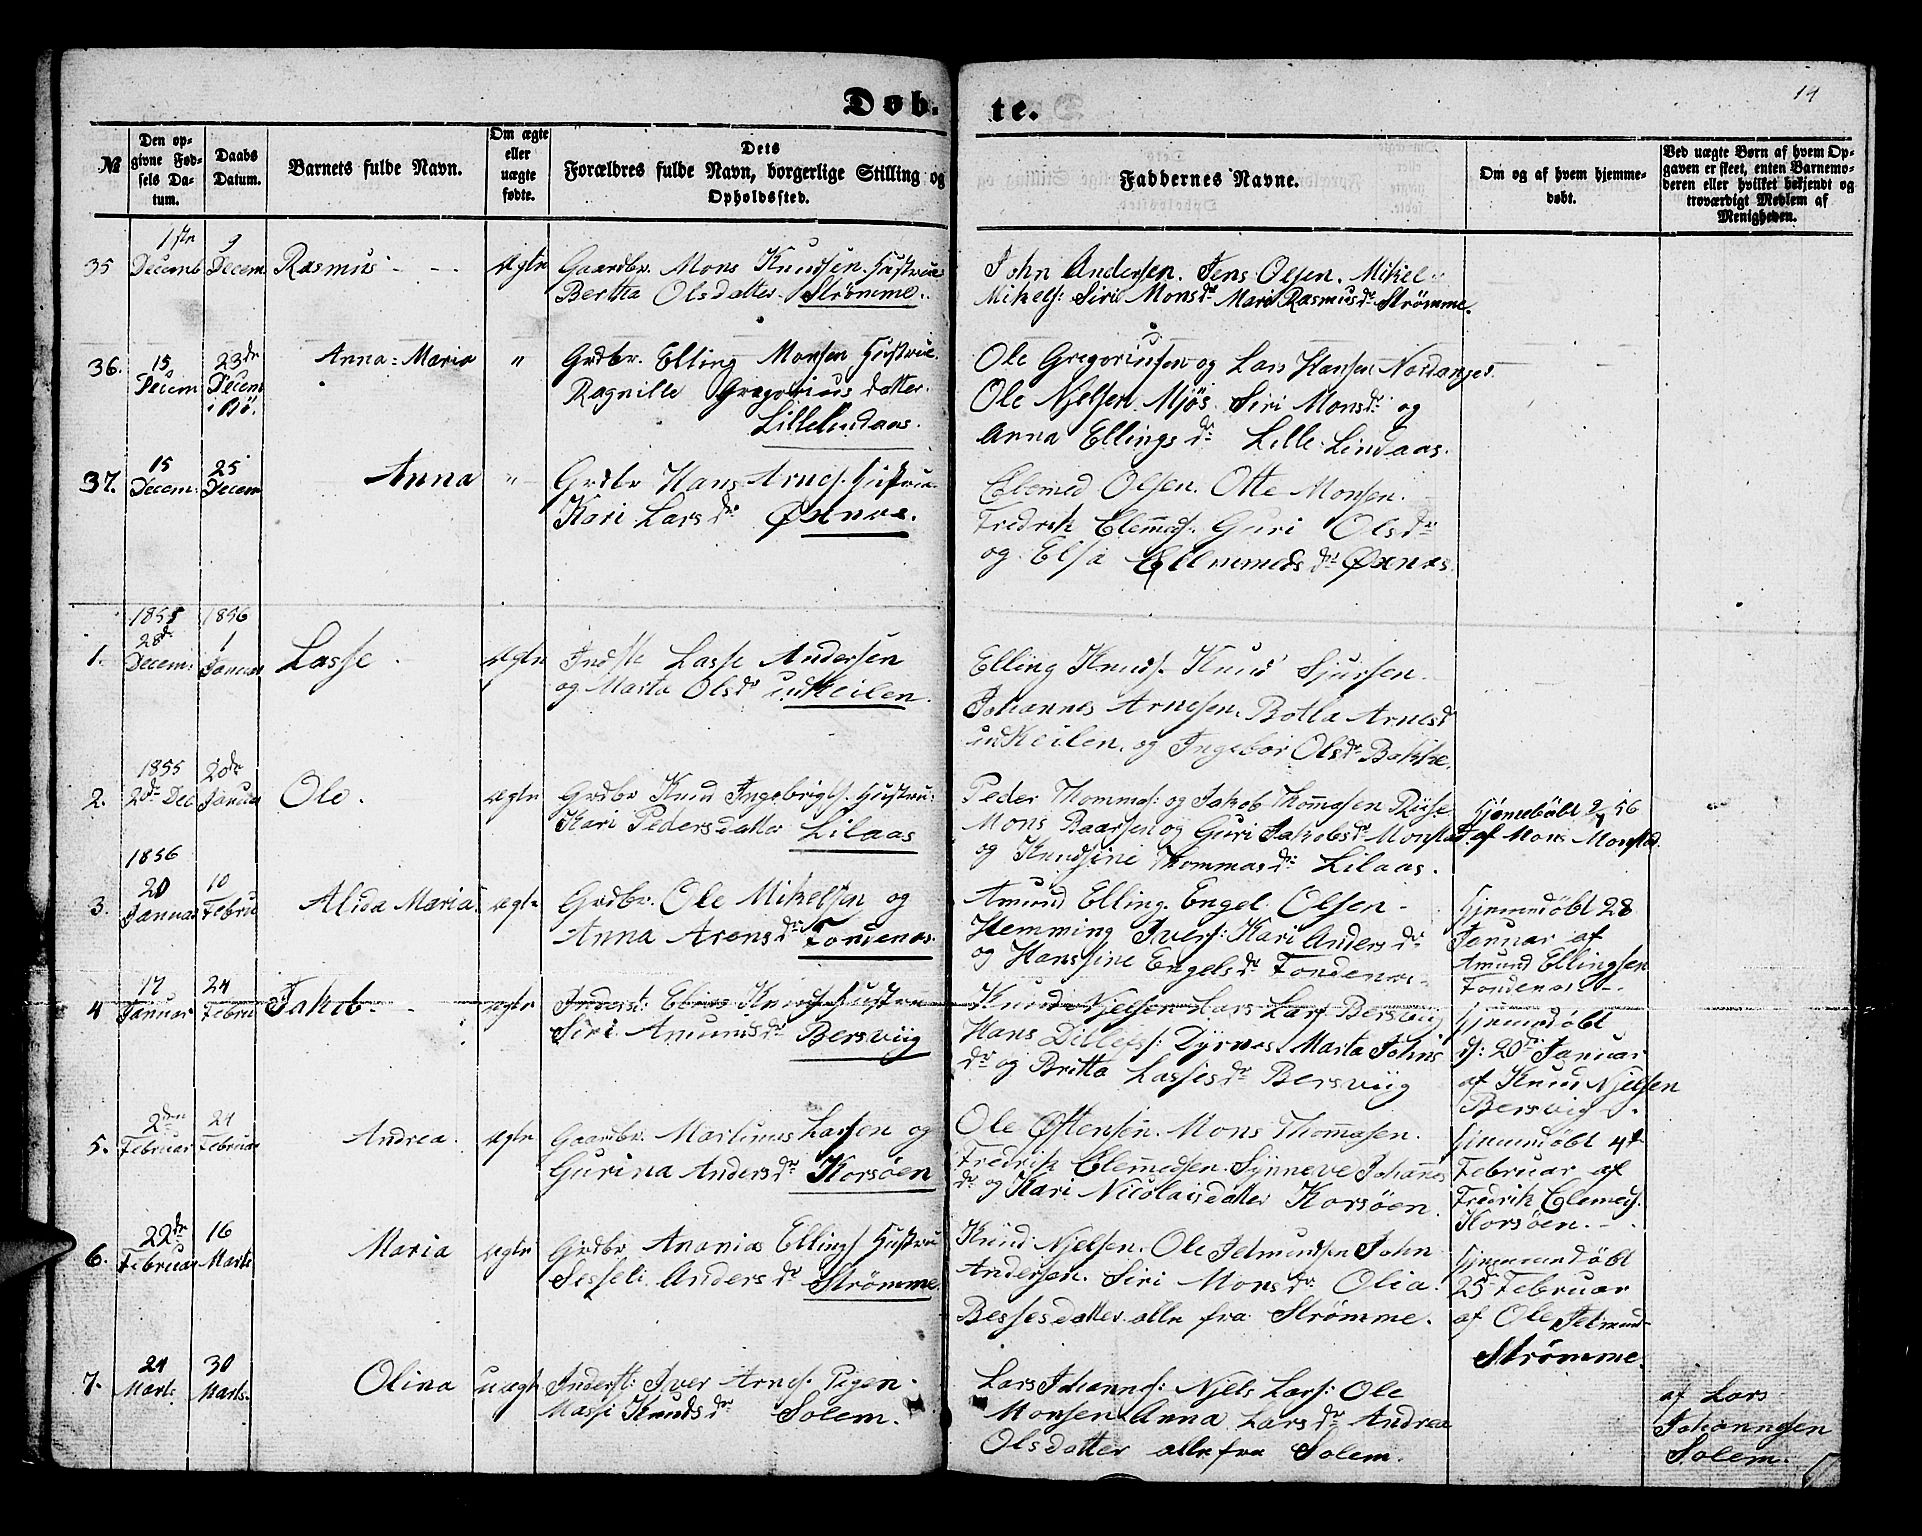 Døb-
te.
14
№
Den op-
givne Fød-
sels Da-
tum.
Daabs
Datum.
Barnets fulde Navn.
Om ægte
eller
uægte
fødte.
Dets
Forældres fulde Navn, borgerlige Stilling og
Opholdssted.
Faddernes Navne.
Om og af hvem hjemme-
døbt.
Ved uægte Børn af hvem Op-
gaven er skeet, enten Barnemo-
deren eller hvilket bekjendt og
troværdigt Medlem af
Menigheden.
35
1ste
Decemb
9
Decem
Rasmus
Ægte
Gaardbr. Mons Knudsen. Hustrue
Bertha Olsdatter. Strømme.
John Andersen. Jens Olsen. Mikel
Mikels: Siri Monsdr Mari Rasmusdr Strømme.
36.
15
Decem
23de
Decem
i Bø.
Anna-Maria
"
Grdbr. Elling Monsen Hustrue.
Ragnille Gregorius datter.
Lille Lindaas.
Ole Gregoriusen og Lars Hansen Nordanger.
Ole Njelsen Mjøs Siri Monsdr og
Anna Ellingsdr Lille-Lindaas.
37.
15
Decem:
25
Decem
Anna
"
Grdbr Hans Arnes. Hustrue
Kari Larsdr Øxnæs.
Clemed Olsen. Otte Monsen.
Fredrik Clem̄eds. Guri Olsdr
og Elsa Ellnmedsdr Øxnæs.
1.
1855
28de
Decem:
1856
1
Januar
Lasse
Ægte
Indste Lasse Andersen
og Marta Olsdr udKeilen.
Elling Knuds. Knud Sjursen.
Johannes Arnesen. Botla Arnesd
udKeilen. og Ingebor Olsdr Bakke.
2.
1855
2de Dec
20de
Januar
Ole.
Ægte
Grdbr Knud Ingebrigts. Hustru:
Kari Pedersdatter Lilaas
Peder Thommas: og Jakob Thom̄asen Riise
Mons Baarsen og Guri Jakobsdr Monstad.
og Knudsine Thommasdr Lilaas.
Hjemedøbt 2/1 56
af Mons Monstad.
3.
1856
20
Januar
10
Febru
Alida Maria.
Ægte
Grdbr. Ole Mikelsen og
Anna Arensdr Fondenæs.
Amund Elling. Engel Olsen
Hemming Ivers: Kari Andersdr
og Hanssine Engelsdr Fondenæs.
Hjemmedøbt 28
Januar af
Amund Ellingsen
Fondenæs
4
17
Januar
24
Febru
Jakob
Ægte
Inderst: Elias Knuds. Hustrue
Siri Amundsdr Bersviig
Knud Njelsen Lars Lars. Bersviig
Hans Ditlefs: Dyrnes. Marta Johns
dr og Britta Lassesdr Bersviig
Hjemmedøbt
d: 20de Januar
af Knud Njelsen
Bersvig.
5.
2den
Februar
24
Februar
Andrea.
Ægte
Gaardbr. Martinus Larsen og
Gurina Andersdr Korsøen
Ole Østensøn. Mons Thom̄asen.
Fredrik Clem̄edsen. Synneve Johan̄es
dr og Kari Nicolaisdatter Korsøen.
Hjemmedøbt 4de
Februar af
Fredrik Clemeds.
Korsøen.
6.
22de
Februar
16
Marts
Maria
Ægte
Grdbr. Ananias Ellings. Hustru
Sesseli Andersdr Strømme.
Knud Njelsen. Ole Jetmundsen John
Andersen. Siri Monsdr Olia
Bessesdatter alle fra Strømme.
Hjemmedøbt
25de Februar
af Ole Jetmund-
Strømme.
7.
24
Marts
30
Marts.
Olina
uægte
Inderst: Iver Arnes. Pigen
Massi Knudsdr Solem.
Lars Johannes: Njels Lars: Ole
Monsen Anna Larsdr Andrea
Olsdatter alle fra Solem.
af Lars
Johannesen
Solem.